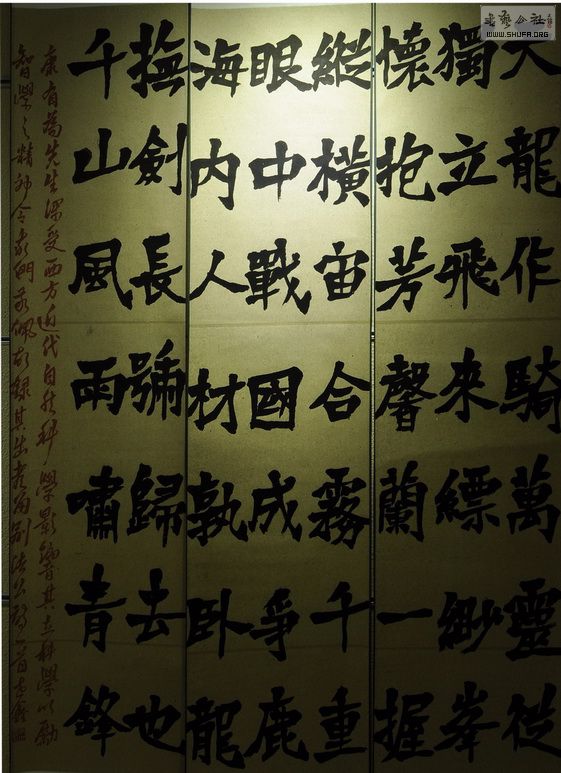 書藝公社
WWW.SHUFA.ORG
天龍作騎萬靈從
獨立飛來縹緲峯
懷抱芳馨蘭一握
縱橫宙合霧千重
眼中戰國成爭鹿
海內人材孰臥龍
撫劍長號歸去也
千山風雨嘯青鋒
康有為先生深受西方近代自然科學影響其科學以勵
智學之精神令佩故錄其出都留別諸公詩一首